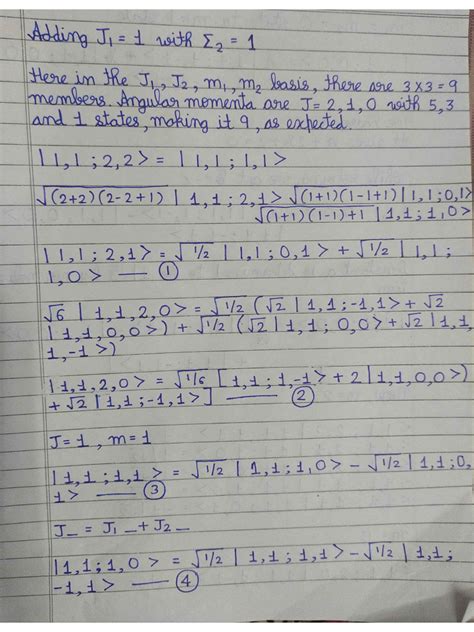 Adding J₁ = 1 with Σ₂ = 1
Here in the J₁, J₂, m₁, m₂ basis, there are 3×3 = 9
members. Angular momenta are J = 2, 1, 0 with 5, 3
and 1 states, making it 9, as expected.
|1,1 ; 2,2> = |1,1 ; 1,1>
√(2+2)(2-2+1) |1,1 ; 2,1> √(1+1)(1-1+1) |1,1 ; 0,1>
√(1+1)(1-1)+1 |1,1 ; 1,0>
|1,1 ; 2,1> = √1/2 |1,1 ; 0,1> + √1/2 |1,1 ;
1,0> — ①
√6 |1,1,2,0> = √1/2 (√2 |1,1 ; -1,1> + √2
|1,1,0,0>) + √1/2 (√2 |1,1 ; 0,0> + √2 |1,1
1,-1>)
|1,1,2,0> = √1/6 [1,1 ; 1,-1> + 2|1,1,0,0>)
+ √2 |1,1 ; -1,1>] — ②
J=1, m=1
|1,1 ; 1,1> = √1/2 |1,1 ; 1,0> - √1/2 |1,1 ; 0,
1> — ③
J_ = J₁_ + J₂_
|1,1 ; 1,0> = √1/2 |1,1 ; 1,1> - √1/2 |1,1 ;
-1,1> — ④